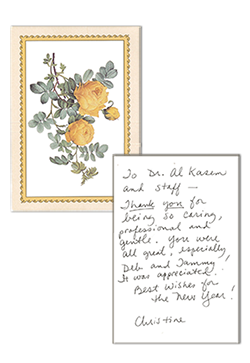 To Dr. Al Kasem
and staff —
Thank you for
being so caring,
professional and
gentle. You were
all great, especially
Deb and Tammy!
It was appreciated.
Best Wishes for
the New Year!
Christine